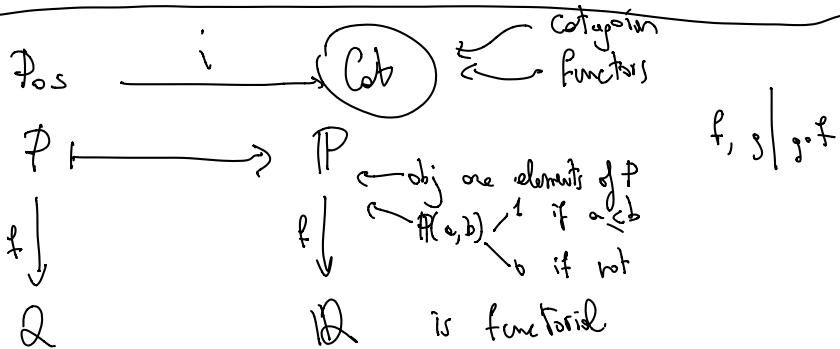 Pos i Cat categories
functors
f, g | g∘f
P ↦ ℙ
obj are elements of P
ℙ(a,b) 1 if a ≤ b
0 if not
f f
Q ℚ is functorial